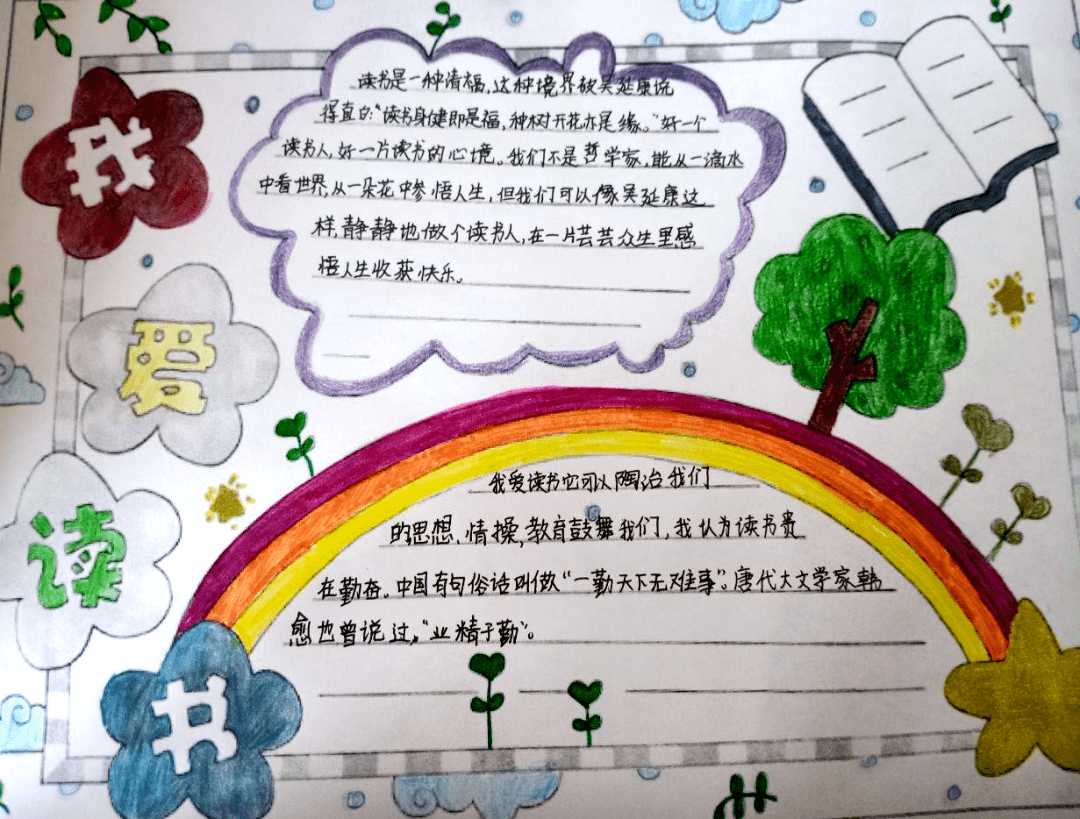 我
爱
读
书
读书是一种清福,这种境界被吴延康说
得直白:“读书身健即是福,种树开花亦是缘。”好一个
读书人,好一片读书的心境。我们不是哲学家,能从一滴水
中看世界,从一朵花中参悟人生,但我们可以像吴延康这
样,静静地做个读书人,在一片芸芸众生里感
悟人生收获快乐。
我爱读书它可以陶冶我们
的思想、情操,教育鼓舞我们,我认为读书贵
在勤奋。中国有句俗话叫做“一勤天下无难事”。唐代大文学家韩
愈也曾说过,“业精于勤”。